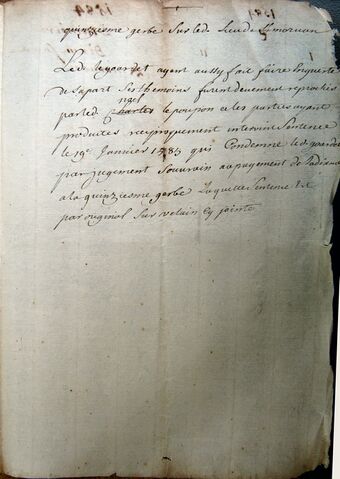 quinziesme gerbe sur led. lieu de St morvan
Led. le gouardet ayant aussy fait faire Enqueste
de sa part ses themoins furent deuement reprochés
par led. Charles le poupon et les parties ayant
produites reciproquement intervint sentence
le 19e. Janvier 1585 qui Condamne le d.
par jugement souvrain au payement de la dixme
a la quinziesme gerbe laquelle sentence Est
par original sur velain cy jointe